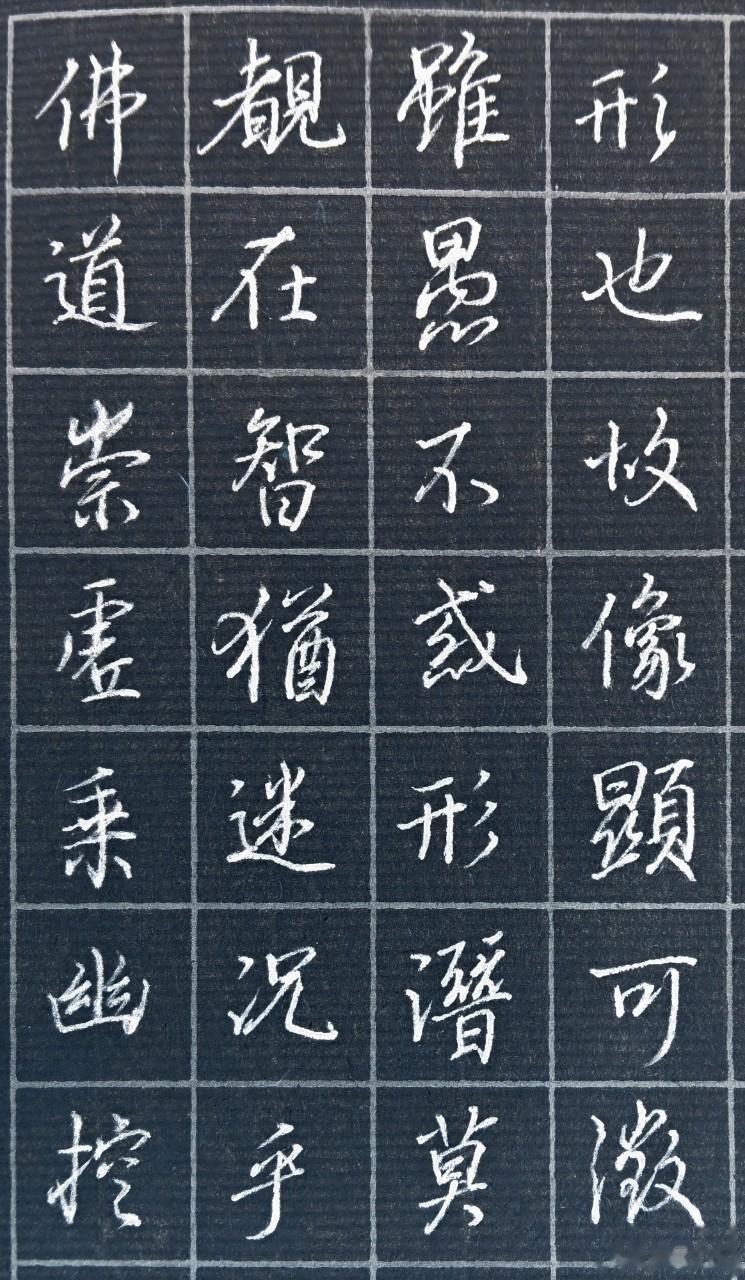 形也故像顯可徵
雖愚不惑形潛莫
覩在智猶迷况乎
佛道崇虛乘幽控